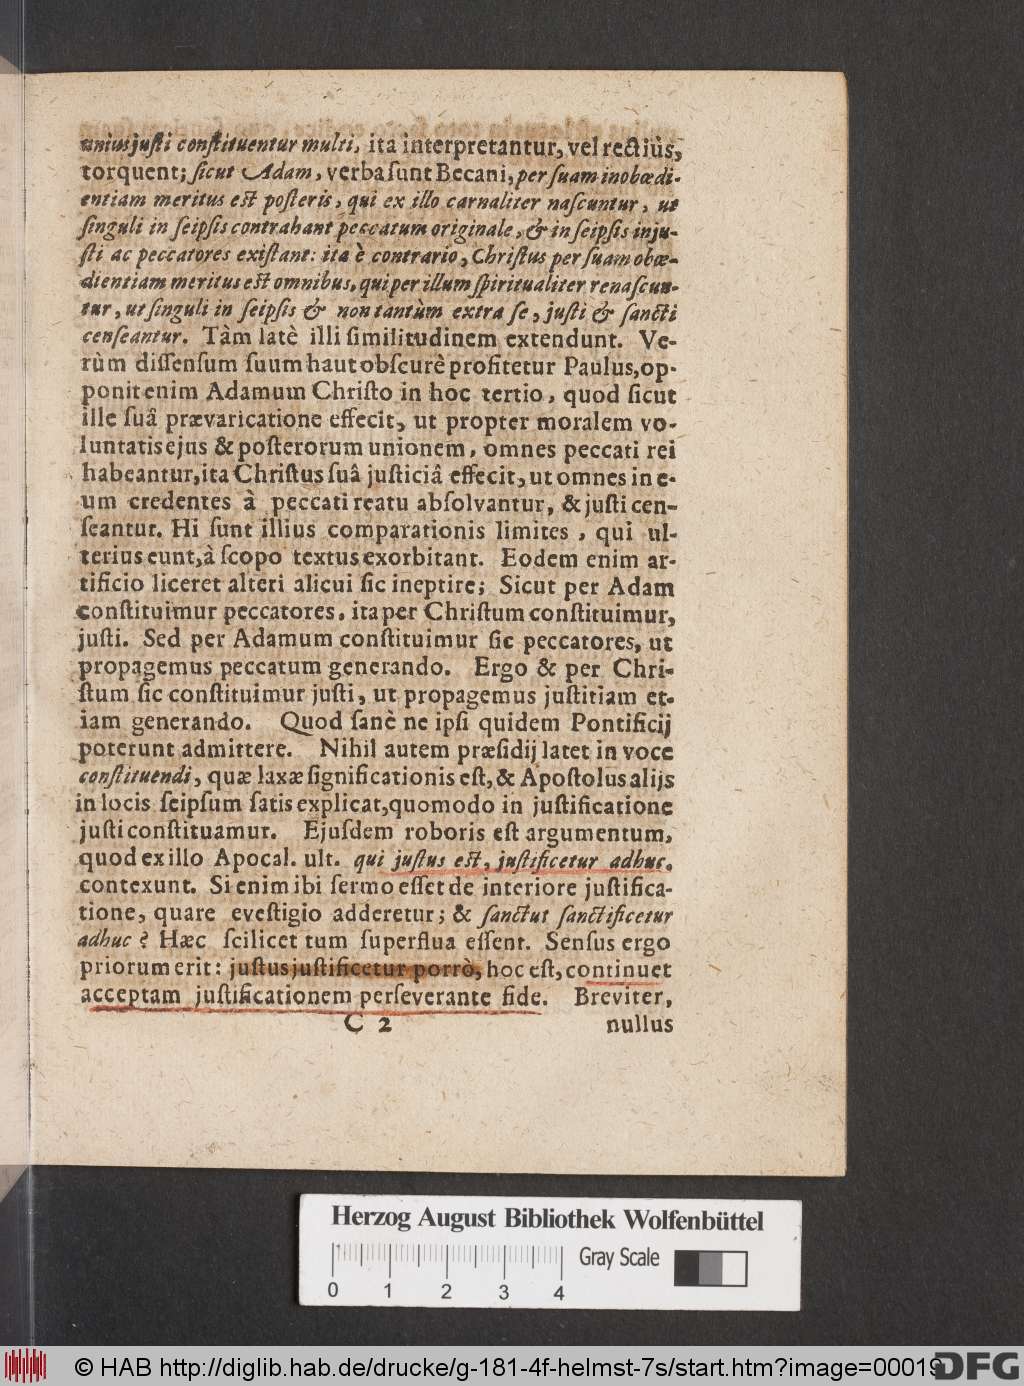 unius juſti conſtituentur multi, ita interpretantur, vel rectiùs,
torquent; ſicut Adam, verba ſunt Becani, per ſuam inobœdi-
entiam meritus eſt poſteris, qui ex illo carnaliter naſcuntur, ut
ſinguli in ſeipſis contrahant peccatum originale, & in ſeipſis inju-
ſti ac peccatores exiſtant: ita è contrario, Chriſtus per ſuam obœ-
dientiam meritus eſt omnibus, qui per illum ſpiritualiter renaſcun-
tur, ut ſinguli in ſeipſis & non tantùm extra ſe, juſti & ſancti
cenſeantur. Tàm latè illi ſimilitudinem extendunt. Ve-
rùm diſſenſum ſuum haut obſcurè profitetur Paulus, op-
ponit enim Adamum Chriſto in hoc tertio, quod ſicut
ille ſuâ prævaricatione effecit, ut propter moralem vo-
luntatis ejus & poſterorum unionem, omnes peccati rei
habeantur, ita Chriſtus ſuâ juſticiâ effecit, ut omnes in e-
um credentes à peccati reatu abſolvantur, & juſti cen-
ſeantur. Hi ſunt illius comparationis limites, qui ul-
terius eunt, à ſcopo textus exorbitant. Eodem enim ar-
tificio liceret alteri alicui ſic ineptire; Sicut per Adam
conſtituimur peccatores, ita per Chriſtum conſtituimur,
juſti. Sed per Adamum conſtituimur ſic peccatores, ut
propagemus peccatum generando. Ergo & per Chri-
ſtum ſic conſtituimur juſti, ut propagemus juſtitiam et-
iam generando. Quod ſanè ne ipſi quidem Pontificij
poterunt admittere. Nihil autem præſidij latet in voce
conſtituendi, quæ laxæ ſignificationis eſt, & Apoſtolus alijs
in locis ſeipſum ſatis explicat, quomodo in juſtificatione
juſti conſtituamur. Ejuſdem roboris eſt argumentum,
quod ex illo Apocal. ult. qui juſtus eſt, juſtificetur adhuc,
contexunt. Si enim ibi ſermo eſſet de interiore juſtifica-
tione, quare eveſtigio adderetur; & ſanctut ſanctificetur
adhuc? Hæc ſcilicet tum ſuperflua eſſent. Senſus ergo
priorum erit: juſtus juſtificetur porrò, hoc eſt, continuet
acceptam juſtificationem perſeverante fide. Breviter,
C 2 nullus
Herzog August Bibliothek Wolfenbüttel
Gray Scale
0 1 2 3 4
© HAB http://diglib.hab.de/drucke/g-181-4f-helmst-7s/start.htm?image=00019
DFG